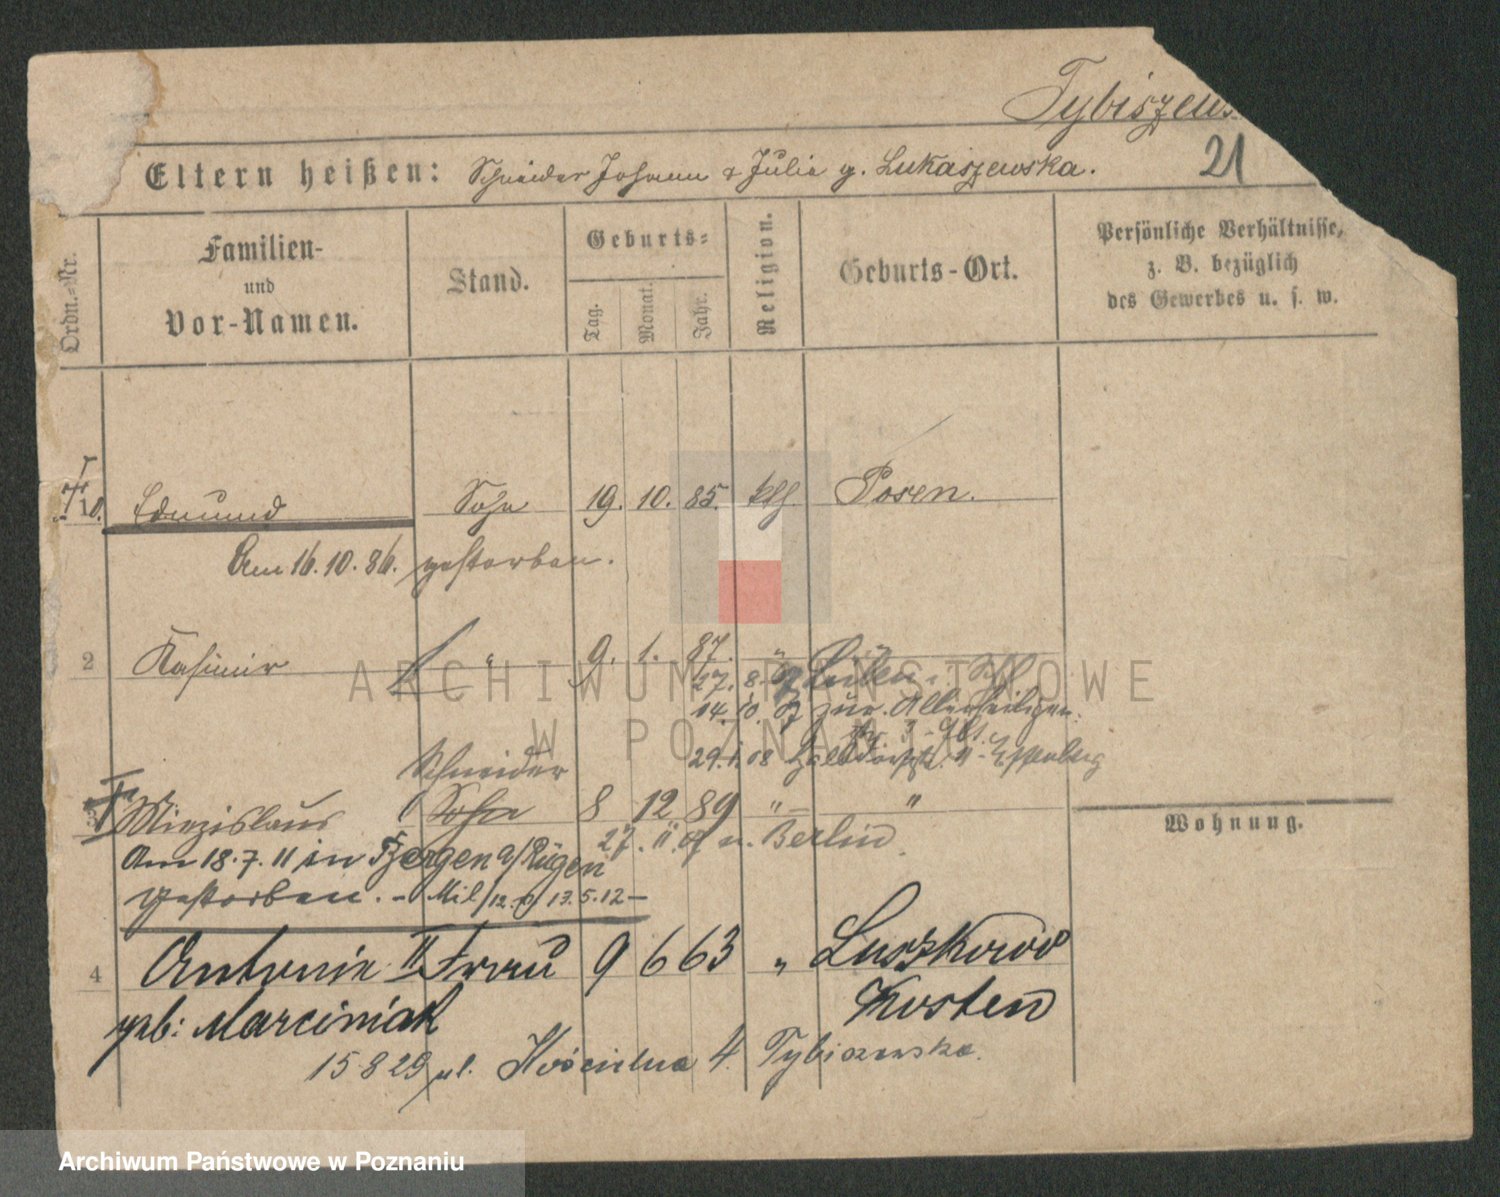 Tybiszews
Eltern heißen: Schneider Johann & Julie g. Lukaszewska.
21
Ordn.-Nr.
Familien-
und
Vor-Namen.
Stand.
Geburts-
Tag.
Monat.
Jahr.
Religion.
Geburts-Ort.
Persönliche Verhältnisse,
z. B. bezüglich
des Gewerbes u. s. w.
Edmund Sohn 19. 10. 85. kth. Posen.
Am 16.10.86. gestorben.
2 Kasimir " 9. 1. 87. "
27. 8.
14. 10. zur. Allerheiligen
29. 1. 08
Schneider
3 Miezislaus Sohn 8 12 89 " "
27. 11. 07 n. Berlin
Am 18.7.11 in Bergen a/Rügen
gestorben. - Mil/ 13.5.12-
Wohnung.
4 Antonie II Frau 9 6 63 " Luszkowo
geb: Marciniak Kosten
15 8 29 ul. Kościelna 4. Tybiszewska.
ARCHIWUM PAŃSTWOWE
W POZNANIU
Archiwum Państwowe w Poznaniu